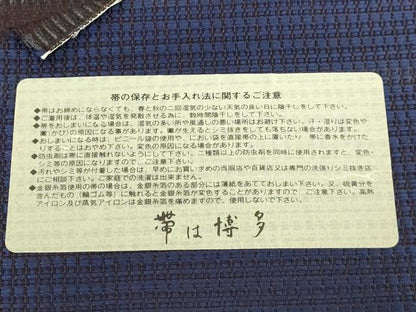 帯の保存とお手入れ法に関するご注意
◆帯はお締めにならなくても、春と秋の二回湿気の少ない天気の良い日に陰干しをして下さい。
◆ご着用後は、体温や湿気を発散させる為に、数時間陰干しして下さい。
◆帯をおしまいになる場合は、湿気の多い所や風通しの悪い場所はお避け下さい。汗・湿りは変色や
黴(かび)の原因になる事があります。黴が生えるとシミ抜きをしても落ちない場合があります。
◆おしまいになる時は、ビニール袋の使用や、におい袋を直接帯の上に置いたり、帯に香水をかけた
りすることはおやめ下さい。変色の原因になります。
◆防虫剤は帯に直接触れないようにして下さい。又、二種類以上の防虫剤を同時に使用されますと、変色・
シミ等の原因になりますので、ご注意下さい。
◆汚れやシミ等が付着した場合は、早めにお買い求めの呉服店や百貨店又は専門の洗張りシミ抜き店
にご相談下さい。ご家庭での洗濯は出来ません。
◆金銀糸箔使用の帯の場合は、金銀糸箔のある部分には薄紙をあてておしまい下さい。又、硫黄分を
含んだもの(輪ゴム等)に触れると金銀糸箔が変色することがありますので、ご注意下さい。高熱
アイロン及び蒸気アイロンは金銀糸箔を痛めますので、使用しないで下さい。
帯は博多